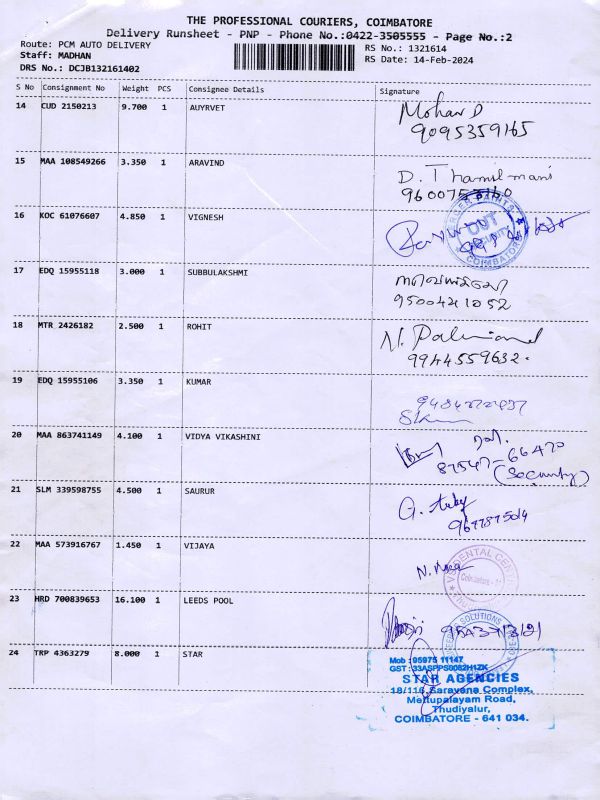 THE PROFESSIONAL COURIERS, COIMBATORE
Delivery Runsheet - PNP - Phone No.:0422-3505555 - Page No.:2
Route: PCM AUTO DELIVERY
Staff: MADHAN
DRS No.: DCJB132161402
RS No.: 1321614
RS Date: 14-Feb-2024
S No Consignment No Weight PCS Consignee Details Signature
14 CUD 2150213 9.700 1 AUYRVET Mohan D
9095359165
15 MAA 108549266 3.350 1 ARAVIND D. Thamilmani
16 KOC 61076607 4.850 1 VIGNESH
OUT
COIMBATORE
17 EDQ 15955118 3.000 1 SUBBULAKSHMI
9500421052
18 MTR 2426182 2.500 1 ROHIT N.
9944559632.
19 EDQ 15955106 3.350 1 KUMAR
20 MAA 863741149 4.100 1 VIDYA VIKASHINI
87547-66470
(Security)
21 SLM 339598755 4.500 1 SAURUR
22 MAA 573916767 1.450 1 VIJAYA
DENTAL
23 HRD 700839653 16.100 1 LEEDS POOL
SOLUTIONS
24 TRP 4363279 8.000 1 STAR
Mob : 95975 11147
GST : 33ASPPS0082H1ZK
STAR AGENCIES
18/116, Saravana Complex,
Mettupalayam Road,
Thudiyalur,
COIMBATORE - 641 034.